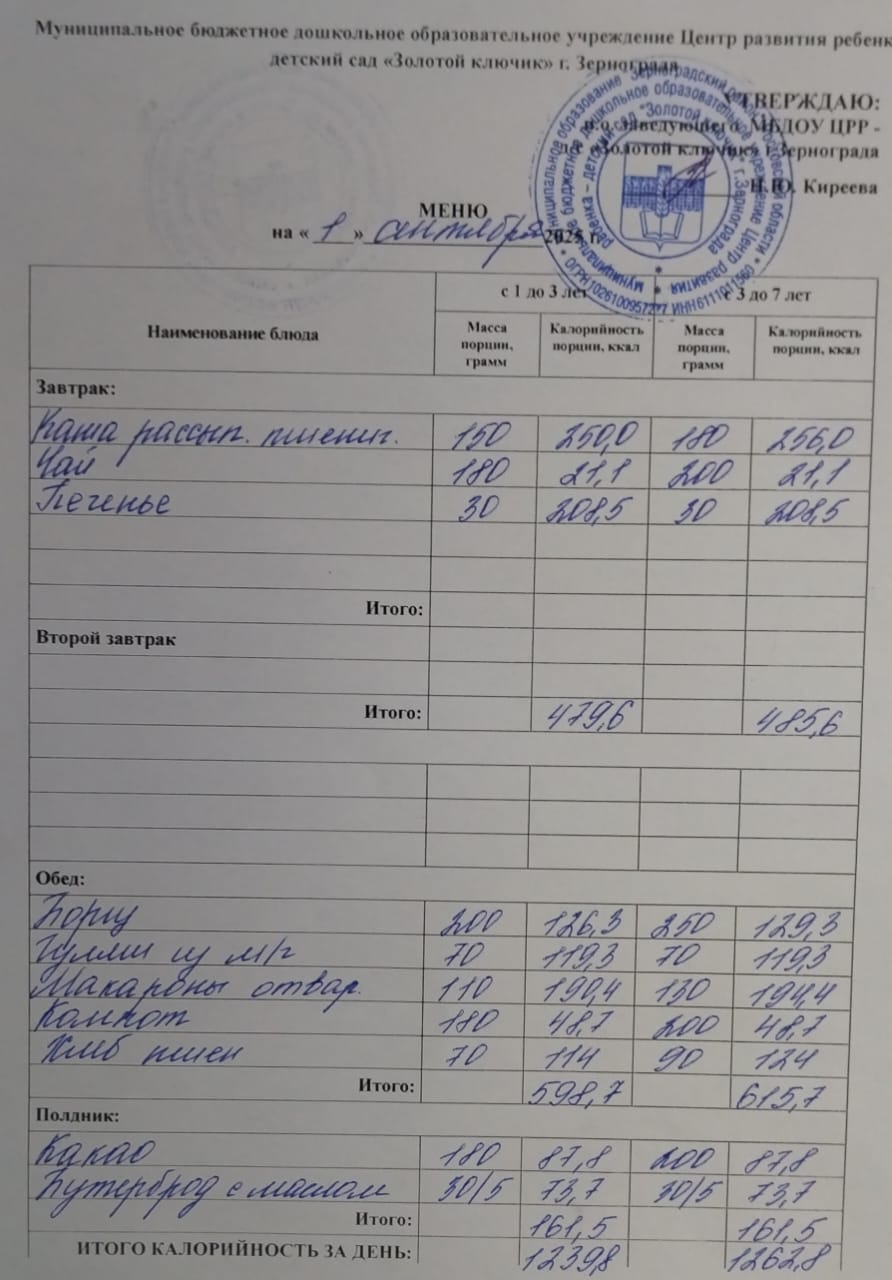 Муниципальное бюджетное дошкольное образовательное учреждение Центр развития ребенк
детский сад «Золотой ключик» г. Зернограда
УТВЕРЖДАЮ:
и.о. заведующего МБДОУ ЦРР -
д/с «Золотой ключик» г.Зернограда
Н.Ю. Киреева
МЕНЮ
на « 1 » сентября 2025 г.
с 1 до 3 лет с 3 до 7 лет
Наименование блюда Масса порции, грамм Калорийность порции, ккал Масса порции, грамм Калорийность порции, ккал
Завтрак:
Каша рассып. пшенич. 150 250,0 180 256,0
Чай 180 21,1 200 21,1
Печенье 30 208,5 30 208,5
Итого:
Второй завтрак
Итого: 479,6 485,6
Обед:
Борщ 200 126,3 250 129,3
Гуляш из м/г 70 119,3 70 119,3
Макароны отвар. 110 190,4 130 194,4
Компот 180 48,7 200 48,7
Хлеб пшен 70 114 90 124
Итого: 598,7 615,7
Полдник:
Какао 180 87,8 200 87,8
Бутерброд с маслом 30/5 73,7 30/5 73,7
Итого: 161,5 161,5
ИТОГО КАЛОРИЙНОСТЬ ЗА ДЕНЬ: 1239,8 1262,8